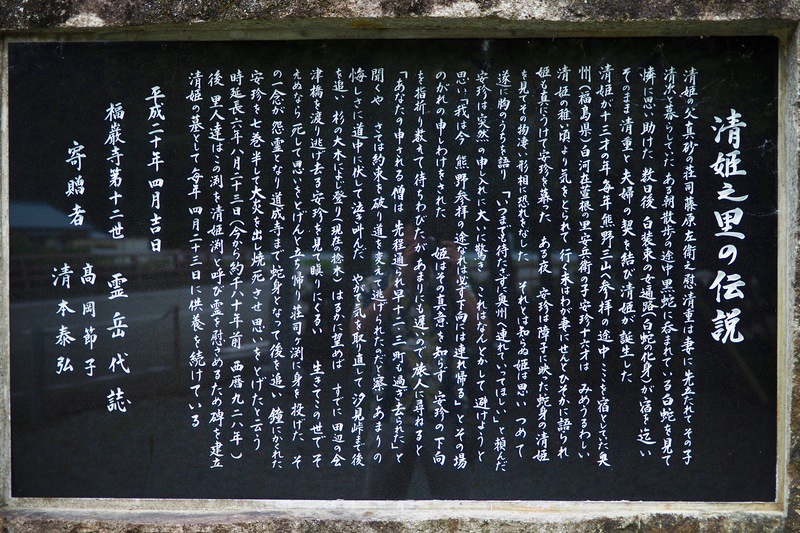 清姫之里の伝説
清姫の父真砂の荘司藤原左衛之慰清重は妻に先立たれてその子
清次と暮らしてた ある朝散歩の途中黒蛇に呑まれている白蛇を見て
憐に思い助けた 数日後 白装束の女遍路(白蛇化身)が宿を乞い
そのまま清重と夫婦の契を結び清姫が誕生した
清姫が十三才の年 毎年熊野三山へ参拝の途中 ここを宿としていた奥
州(福島県)白河在萱根の里安兵衛の子安珍十六才は みめうるわしい
清姫の稚い頃より気をとられて 行く末はわが妻にせんとひそかに語られ
姫も真にうけて安珍を慕た ある夜 安珍は障子に映った蛇身の清姫
を見てその物凄い形相に恐れをなした それとは知らぬ姫は思いつめて
遂に胸のうちを語り 「いつまでも待たさずに奥州へ連れていってほしい」と頼んだ
安珍は突然の申し入れに大いに驚き これはなんとかして 避けようと
思い「我は今 熊野参拝の途 必ず下向には連れ帰る」と その場
のがれの申しわけをされた 姫はその真意を知らず 安珍の下向
を指折り数えて待ちわびたが あまりに遅いので旅人に尋ねると
「あなたの申される僧は 先程通られ早十二・三町も過ぎ去られた」と
聞くや さては約束を破り道を変えて逃げられたのだと察し あまりの
悔しさに道中に伏して泣き叫んだ やがて気を取り直して汐見峠まで後
を追い 杉の大木によじ登り(現在捻木)はるかに望めば すでに田辺の会
津橋を渡り逃げ去る安珍を見て瞋りにくるい 「生きてこの世でそ
えぬなら 死して思いをとげんと」立ち帰り荘司ヶ渕に身を投げた そ
の一念が怨霊となり道成寺まで蛇身となって後を追い 鐘にかくれた
安珍を七巻半して大炎を出し焼死させ思いをとげたと云う
時延長六年八月二十三日(今から約千八十年前 西暦九二八年)
後 里人達はこの渕を清姫渕と呼び霊を慰さめるため碑を建立
清姫の墓として毎年四月二十三日に供養を続けている
平成二十年四月吉日
福巌寺第十二世 霊岳代誌
寄贈者 高岡節子
清本泰弘